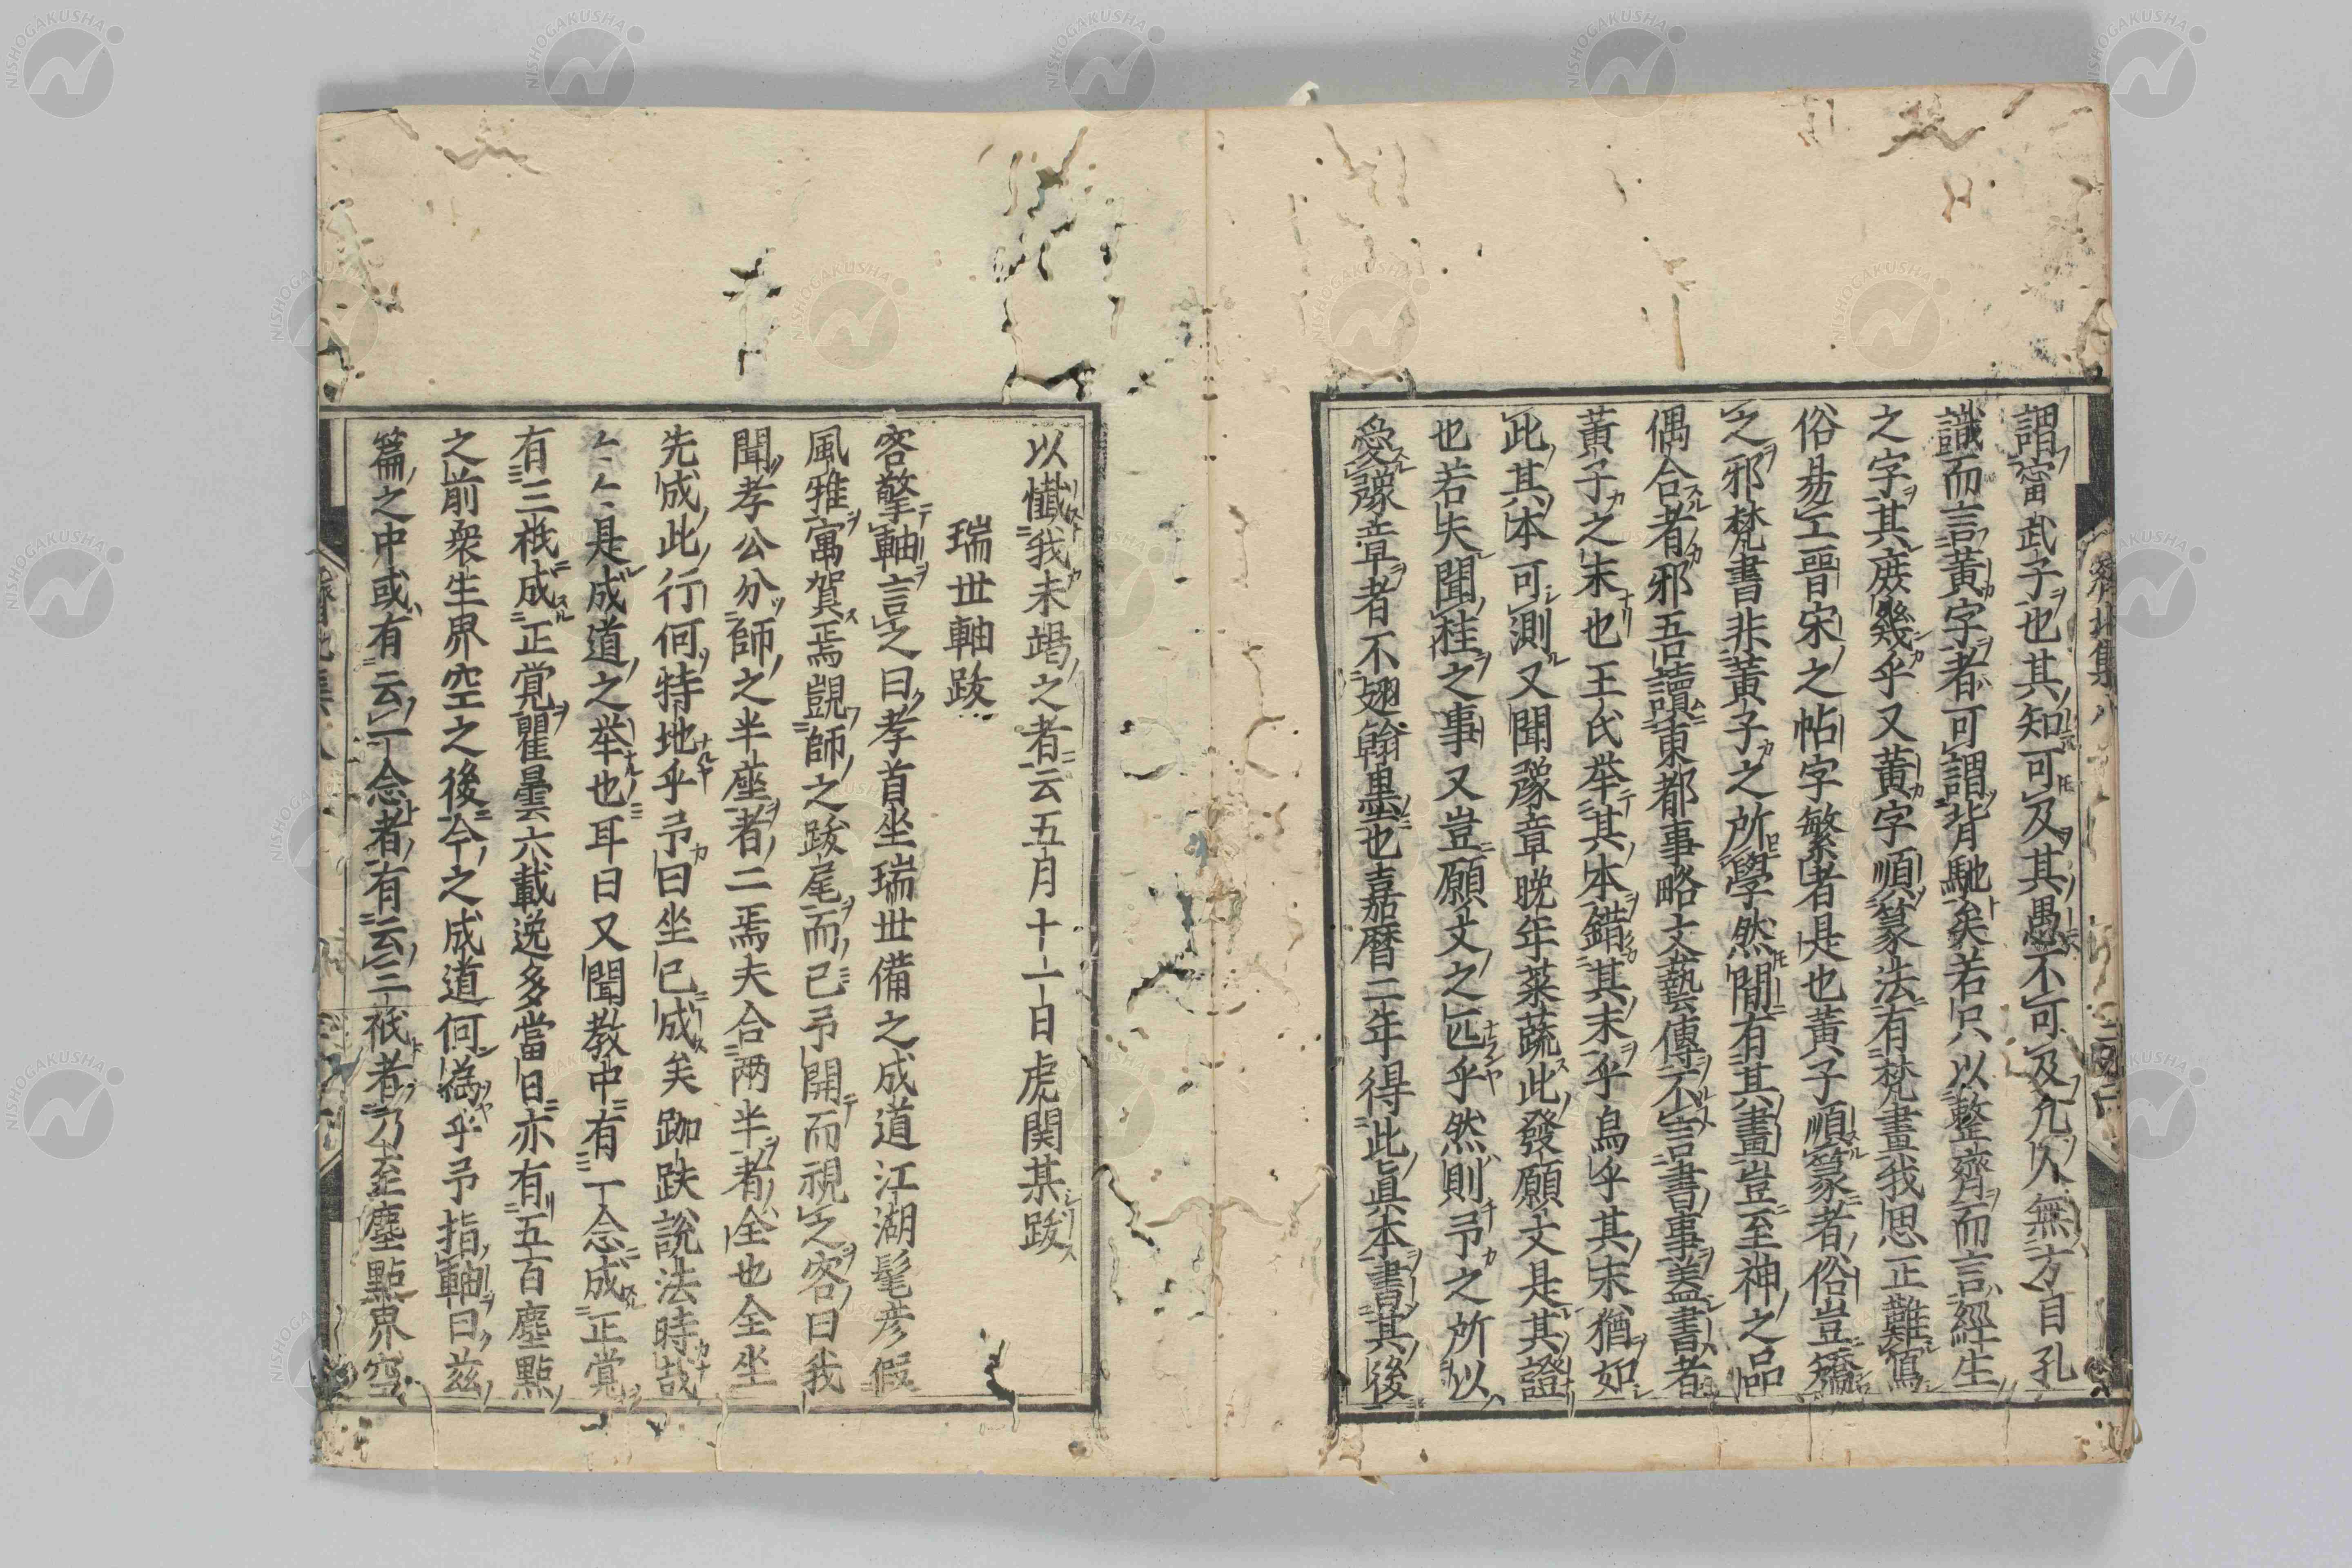 謂寗武子也其知可及其愚不可及凡人無方目孔
識而言黄字者可謂背馳矣若只以整齊而言經生
之字其庻幾乎又黄字順篆法有梵畫我思正難篤
俗昜工晋宋之帖字繁者是也黄子順篆者俗豈矯
之邪梵書非黄子之所學然間有其畫豈至神之品
偶合者邪吾讀東都事略文藝傳不言書事盖書者
黄子之末也王氏举其本錯其末乎烏乎其末猶如
此其本可測又聞豫章晩年菜蔬此發願文是其證
也若夫聞桂之事又豈願文之匹乎然則予之所以
愛豫章者不翅翰墨也嘉暦二年得此真本書其後
以懺我未竭之者云五月十一日虎関某跋
瑞世軸跋
客擎軸言之曰孝首坐瑞世備之成道江湖髦彦假
風雅寓賀焉覬師之跋尾而已予開而視之客曰我
聞孝公分師之半座者二焉夫合兩半者全也全坐
先成此行何特地乎予曰坐已成矣跏趺說法時哉
是成道之举也耳曰又聞教中有一念成正覚
有三祇成正覚瞿曇六載逸多當日亦有五百塵點
之前衆生界空之後今之成道何為乎予指軸曰兹
篇之中或有云一念者有云三祇者乃至塵點界空